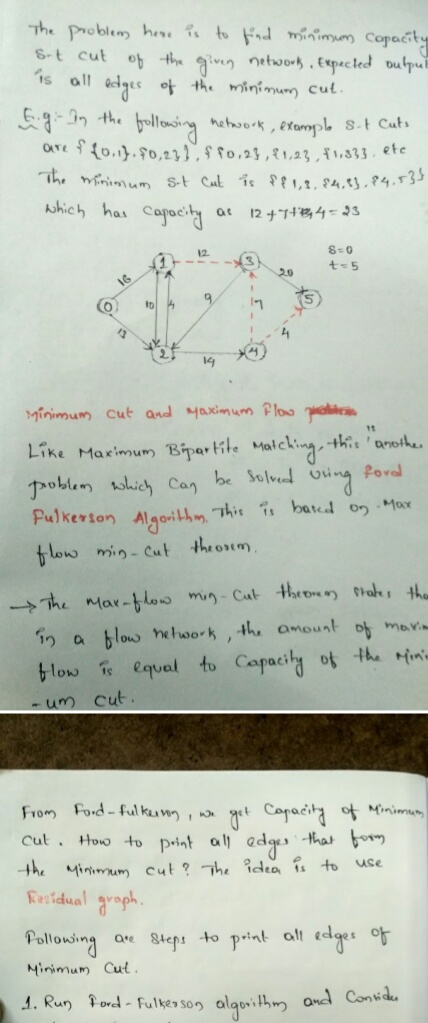 The problem here is to find minimum capacity
s-t cut of the given network. Expected output
is all edges of the minimum cut.
E.g:- In the following network, example s-t cuts
are {{0,1},{0,2}}, {{0,2},{1,2},{1,3}}. etc
The minimum s-t cut is {{1,3},{4,3},{4,5}}
which has capacity as 12+7+4=23
s=0
t=5
12
1
3
20
16
0
10
4
9
7
5
13
4
2
14
4
Minimum cut and Maximum Flow
Like Maximum Bipartite Matching, this is another
problem which can be solved using Ford
Fulkerson Algorithm. This is based on Max
flow min-cut theorem.
→ The Max-flow min-cut theorem states tha
in a flow network, the amount of maxim
flow is equal to capacity of the Mini
-um cut.
From Ford-fulkerson, we get capacity of Minimum
cut. How to print all edges that form
the Minimum cut? The idea is to use
Residual graph.
Following are steps to print all edges of
Minimum cut.
1. Run Ford-Fulkerson algorithm and Conside